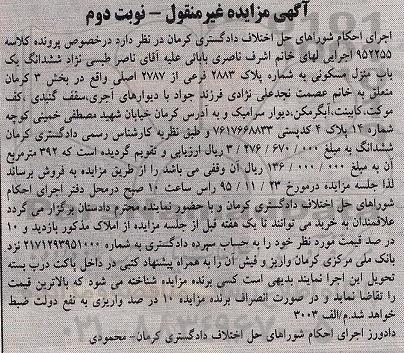 آگهی مزایده غیرمنقول – نوبت دوم
اجرای احکام شوراهای حل اختلاف دادگستری کرمان در نظر دارد درخصوص پرونده کلاسه
۹۵۲۲۵۵ اجرایی لهای خانم اشرف ناصری بابائی علیه آقای ناصر طبسی نژاد ششدانگ یک
باب منزل مسکونی به شماره پلاک ۲۸۸۳ فرعی از ۲۷۸۷ اصلی واقع در بخش ۳ کرمان
متعلق به خانم عصمت نجدعلی نژادی فرزند جواد با دیوارهای آجری،سقف گنبدی ،کف
موکت،کابینت،آبگرمکن،دیوار سرامیک و به آدرس کرمان خیابان شهید مصطفی خمینی کوچه
شماره ۱۴ پلاک ۴ کدپستی ۷۶۱۷۶۶۸۸۳۳ و طبق نظریه کارشناس رسمی دادگستری کرمان
ششدانگ به مبلغ ۰۰۰/ ۶۷۰/ ۲۷۶/ ۳ ریال ارزیابی و تقویم گردیده است که ۳۹۲ مترمربع
آن به مبلغ ۰۰۰/ ۰۰۰/ ۱۳۶ ریال آن وقفی می باشد را از طریق مزایده به فروش برساند
لذا جلسه مزایده درمورخ ۲۳/ ۱۱/ ۹۵ راس ساعت ۱۰ صبح درمحل دفتر اجرای احکام
شوراهای حل اختلاف دادگستری کرمان و با حضور نماینده محترم دادستان برگزار می گردد
علاقمندان به خرید می توانند تا یک هفته قبل از جلسه مزایده از املاک مذکور بازدید و ۱۰
در صد قیمت مورد نظر خود را به حساب سپرده دادگستری به شماره ۲۱۷۱۲۹۳۹۵۱۰۰۰ نزد
بانک ملی مرکزی کرمان واریز و فیش آن را به همراه پیشنهاد کتبی در داخل پاکت درب بسته
تحویل این اجرا نمایند بدیهی است کسی برنده مزایده شناخته می شود که بالاترین قیمت
را تقاضا نماید و در صورت انصراف برنده مزایده ۱۰ در صد واریزی به نفع دولت ضبط
خواهد شد.م/الف ۳۰۰۳
دادورز اجرای احکام شوراهای حل اختلاف دادگستری کرمان- محمودی